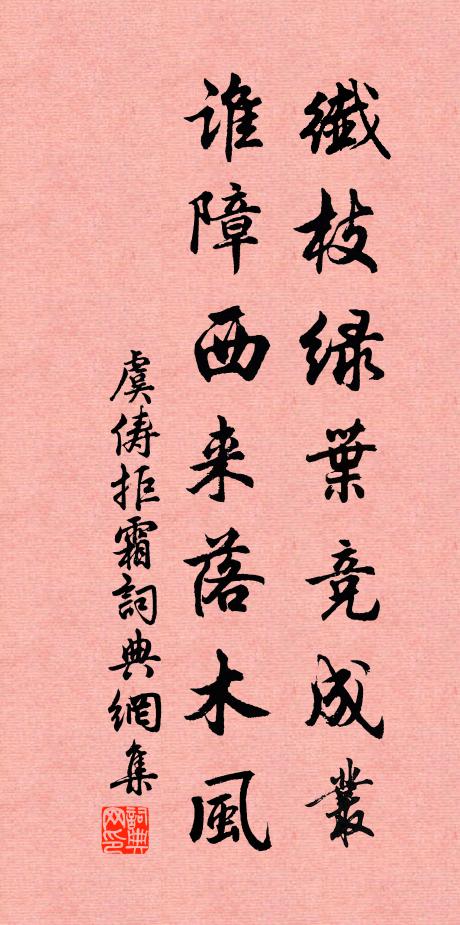 纖枝绿葉竞成叢
誰障西来落木風
虞儔拒霜詞典網集
詞典网印